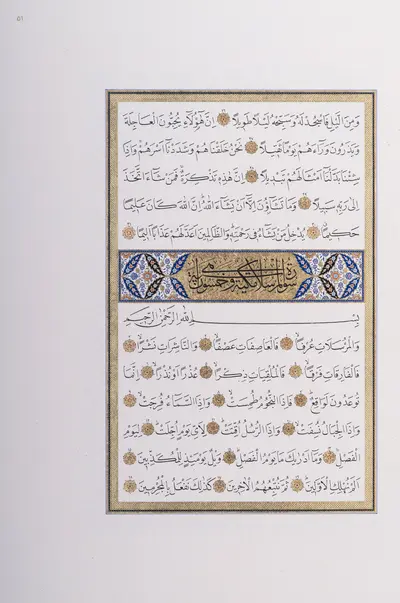 81
وَمِنَ الَّيْلِ فَاسْجُدْ لَهُ وَسَبِّحْهُ لَيْلًا طَوِيلًا إِنَّ هٰؤُلَاءِ يُحِبُّونَ الْعَاجِلَةَ
وَيَذَرُونَ وَرَاءَهُمْ يَوْمًا ثَقِيلًا نَحْنُ خَلَقْنَاهُمْ وَشَدَدْنَا أَسْرَهُمْ وَإِذَا
شِئْنَا بَدَّلْنَا أَمْثَالَهُمْ تَبْدِيلًا إِنَّ هٰذِهِ تَذْكِرَةٌ فَمَنْ شَاءَ اتَّخَذَ
إِلَى رَبِّهِ سَبِيلًا وَمَا تَشَاؤُنَ إِلَّا أَنْ يَشَاءَ اللهُ إِنَّ اللهَ كَانَ عَلِيمًا
حَكِيمًا يُدْخِلُ مَنْ يَشَاءُ فِي رَحْمَتِهِ وَالظَّالِمِينَ أَعَدَّ لَهُمْ عَذَابًا أَلِيمًا
سورة المرسلات مكية وهي خمسون آية
بِسْمِ اللهِ الرَّحْمٰنِ الرَّحِيمِ
وَالْمُرْسَلَاتِ عُرْفًا فَالْعَاصِفَاتِ عَصْفًا وَالنَّاشِرَاتِ نَشْرًا
فَالْفَارِقَاتِ فَرْقًا فَالْمُلْقِيَاتِ ذِكْرًا عُذْرًا أَوْ نُذْرًا إِنَّمَا
تُوعَدُونَ لَوَاقِعٌ فَإِذَا النُّجُومُ طُمِسَتْ وَإِذَا السَّمَاءُ فُرِجَتْ
وَإِذَا الْجِبَالُ نُسِفَتْ وَإِذَا الرُّسُلُ أُقِّتَتْ لِأَيِّ يَوْمٍ أُجِّلَتْ لِيَوْمِ
الْفَصْلِ وَمَا أَدْرَاكَ مَا يَوْمُ الْفَصْلِ وَيْلٌ يَوْمَئِذٍ لِلْمُكَذِّبِينَ
أَلَمْ نُهْلِكِ الْأَوَّلِينَ ثُمَّ نُتْبِعُهُمُ الْآخِرِينَ كَذٰلِكَ نَفْعَلُ بِالْمُجْرِمِينَ